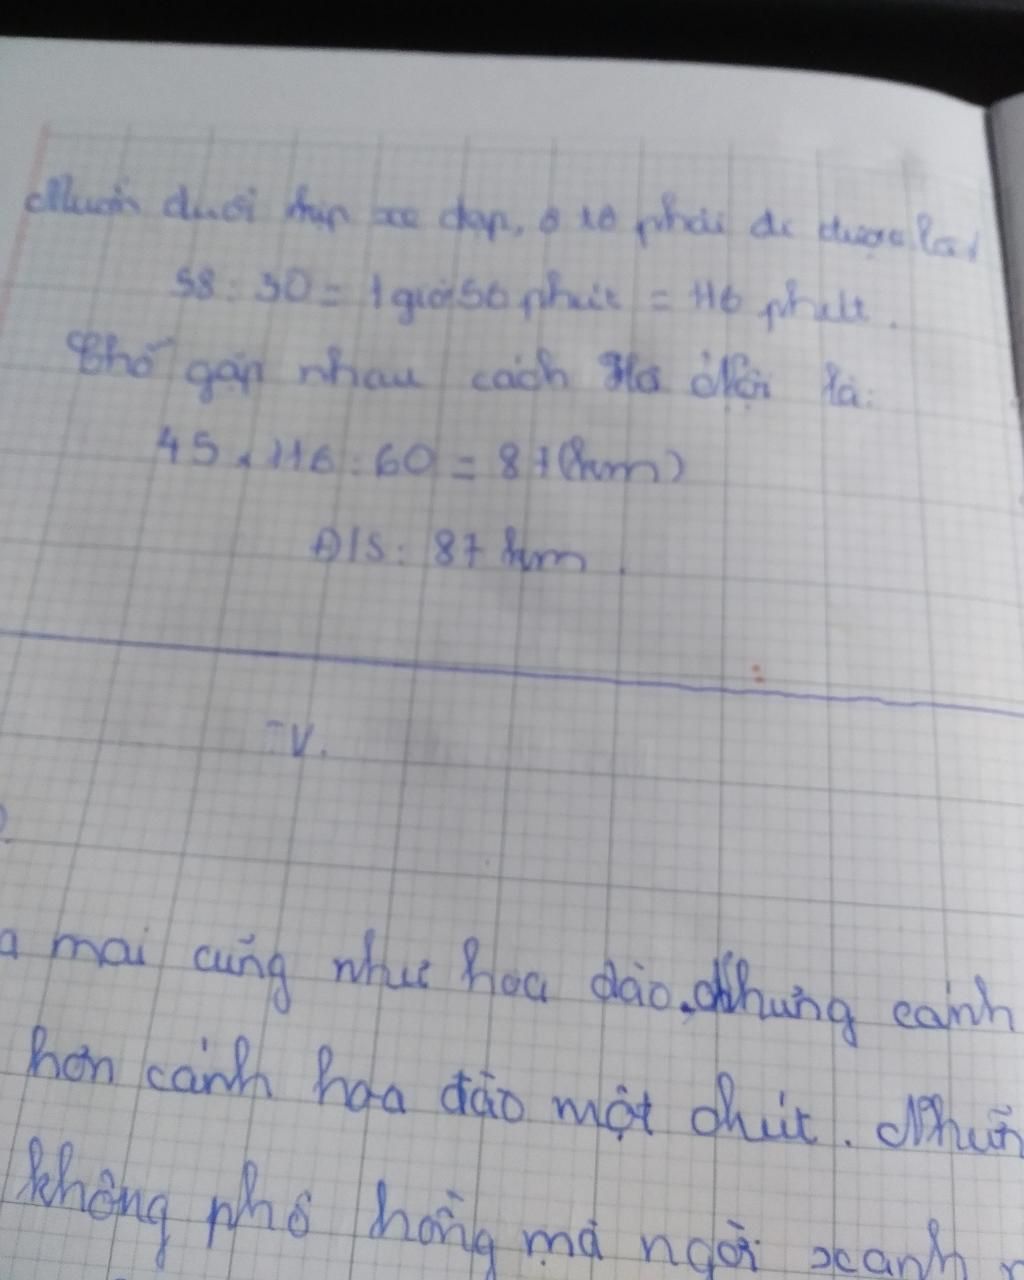 Muốn đuổi kịp xe đạp, ô tô phải đi được là:
58 : 30 = 1 giờ 56 phút = 116 phút.
Chỗ gặp nhau cách Hà Nội là:
45 x 116 : 60 = 87 (km)
Đ/S: 87 km.
TV.
mai cũng như hoa đào. Nhưng cánh
hơn cánh hoa đào một chút.
không phô hồng mà ngời xanh